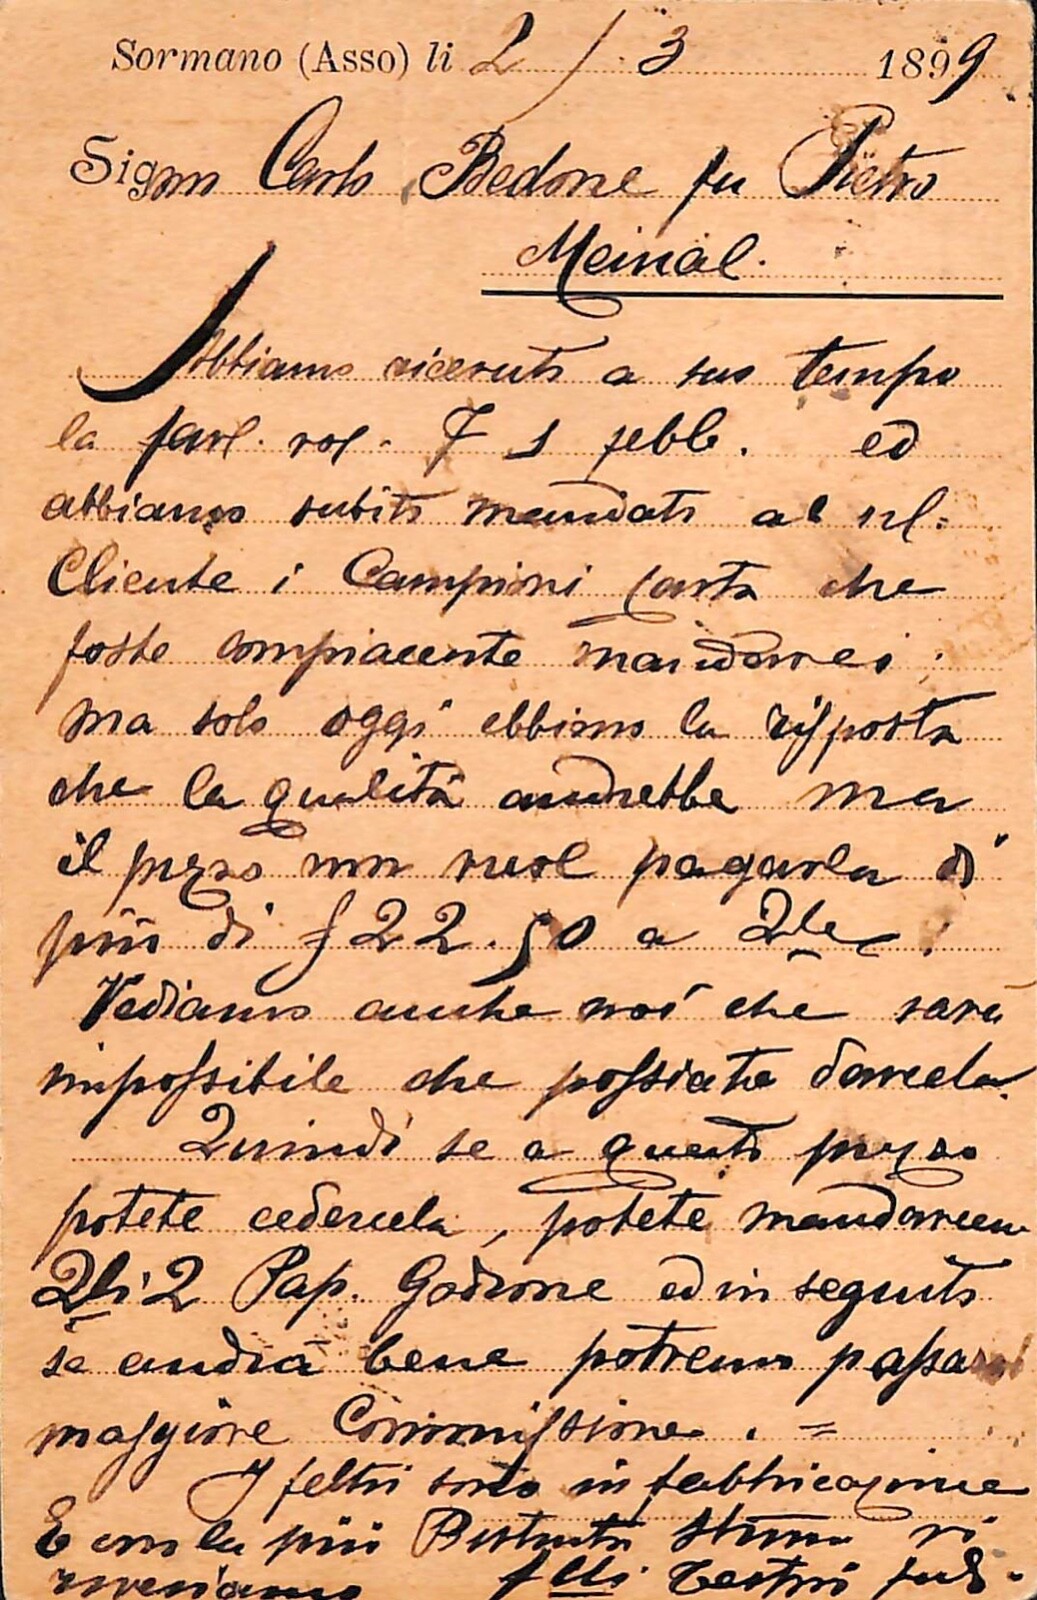 Sormano (Asso) li 2/3 1899
Signor Carlo Bedone fu Pietro
Meinal.
Abbiamo ricevuto a suo tempo
la favl. vos. 7 1 febb. ed
abbiamo subito mandato al rel.
Cliente i Campioni Carta che
foste compiacente mandarci
ma solo oggi ebbimo la risposta
che la qualità andrebbe ma
il prezzo non vuol pagarla di
più di £ 22.50 a Qle.
Vediamo anche noi che sarà
impossibile che possiate darcela.
Quindi se a questo prezzo
potete cedercela, potete mandarcene
Qli 2 Pap. Godrone ed in seguito
se andrà bene potremo
maggiore Commissione. =
I feltri sono in fabbricazione
E con la più stima vi
riveriamo flli Testori